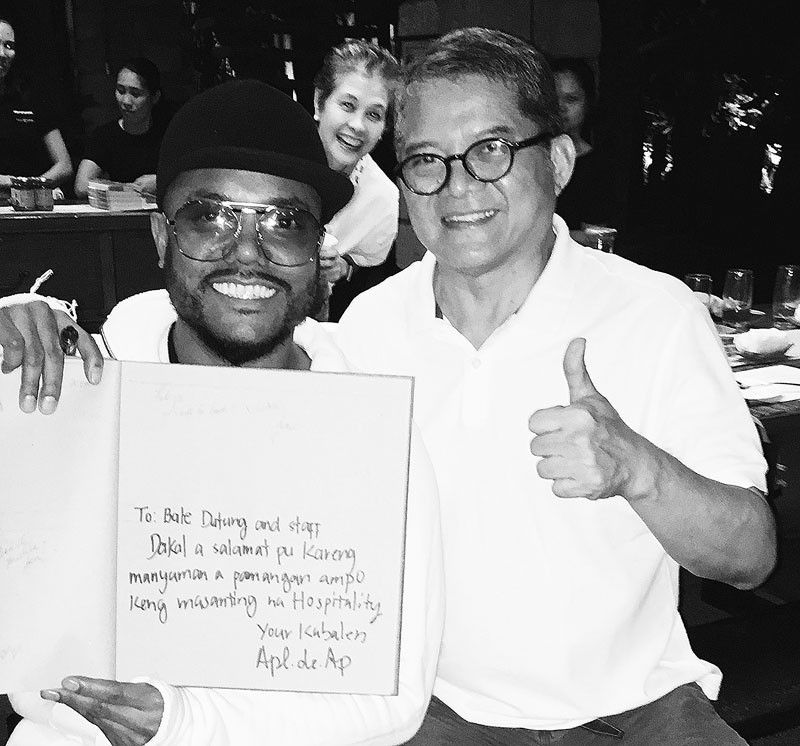 To: Bale Dutung and staff
Dakal a salamat pu Kareng
manyaman a pamangan ampo
Keng masanting na Hospitality
Your Kabalen
Apl.de.Ap